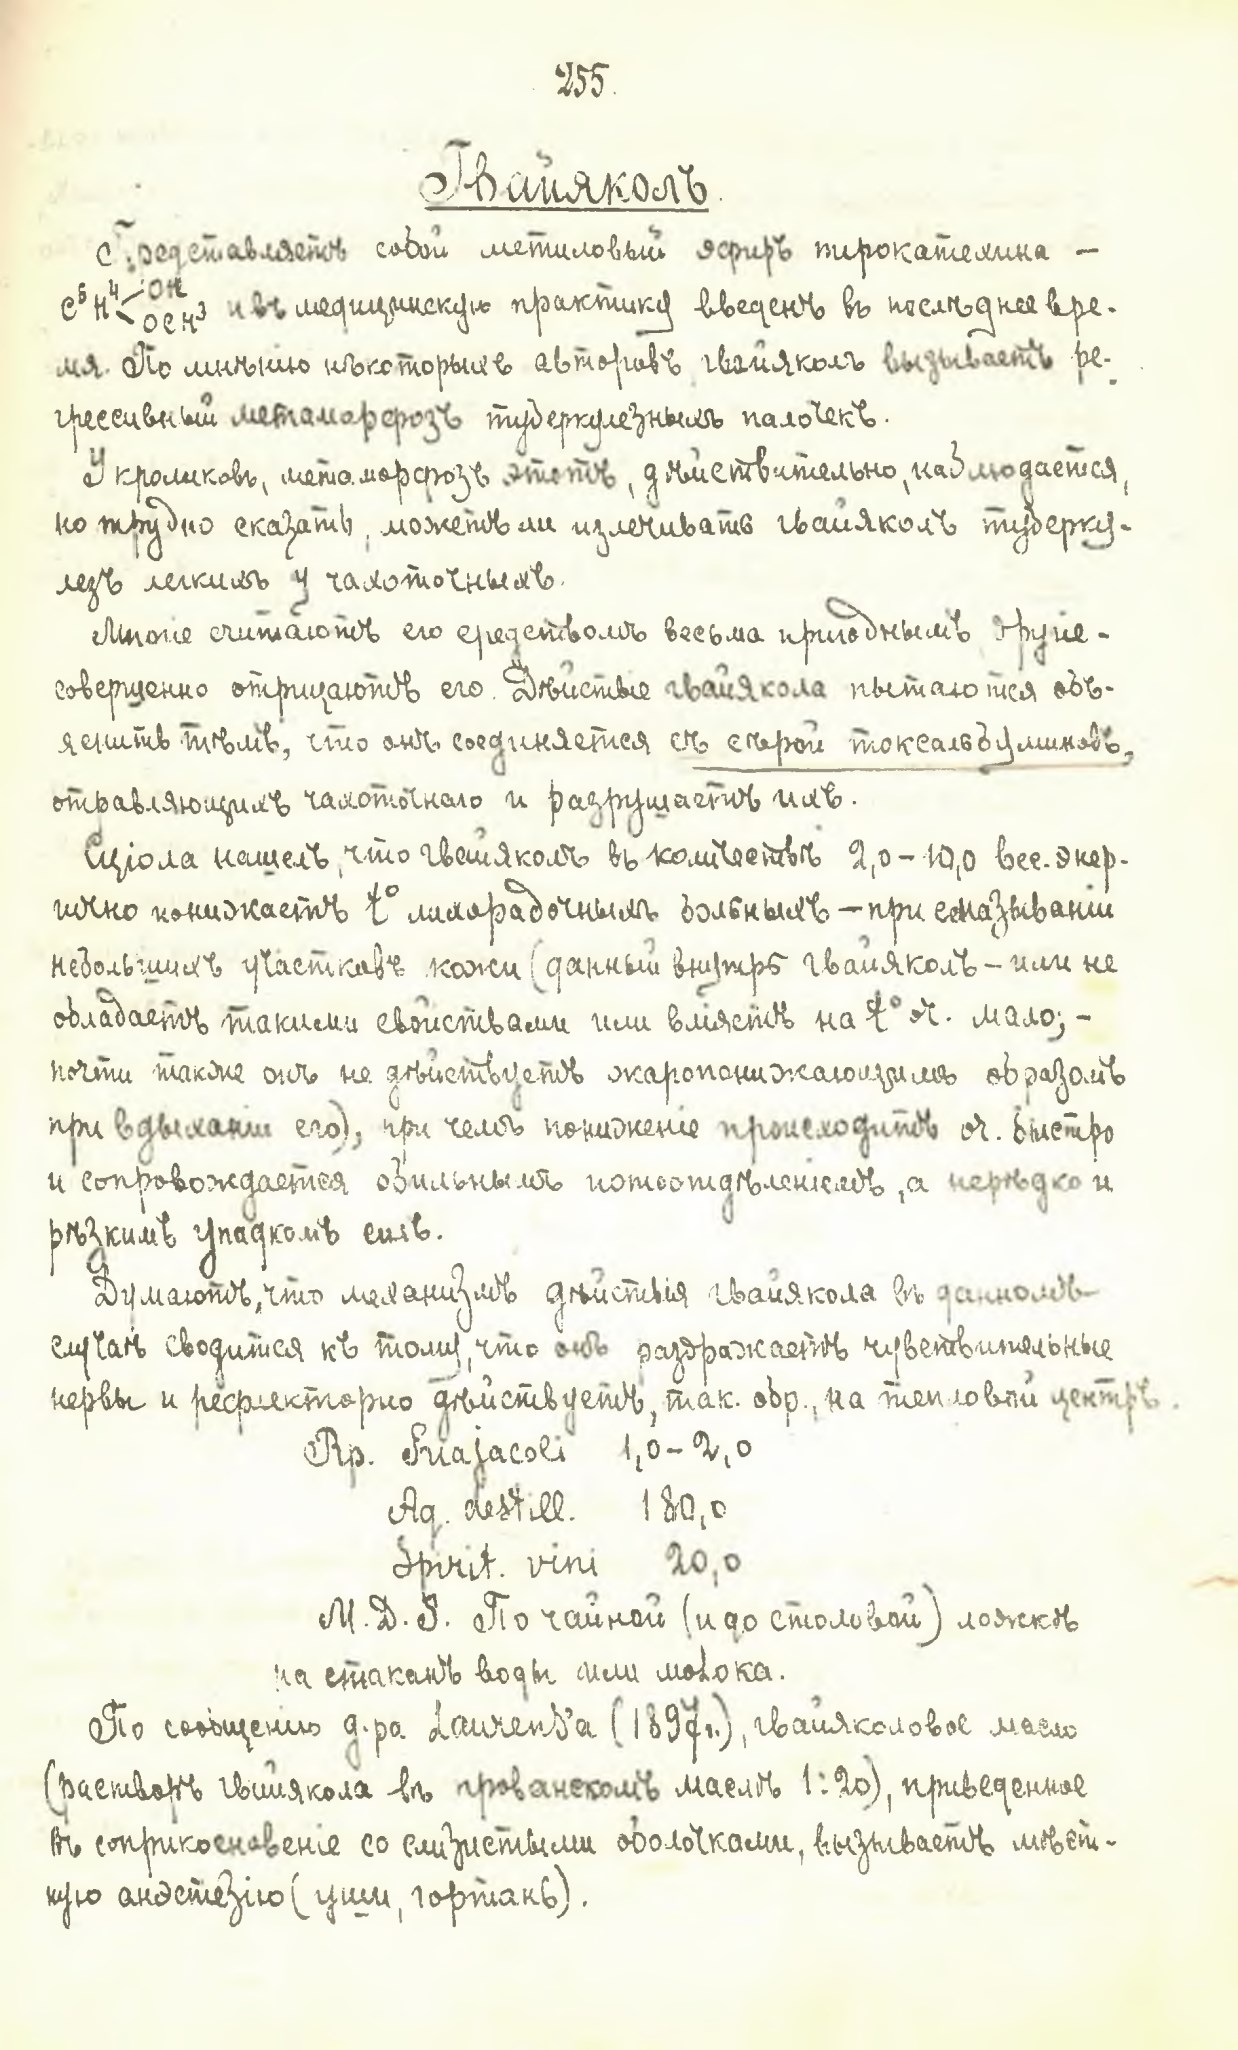 255.
Гвайяколъ.
Представляетъ собой метиловый эфиръ пирокатехина —
C⁶H⁴<OH OCH³ и въ медицинскую практику введенъ въ послѣднее вре-
мя. По мнѣнію нѣкоторыхъ авторовъ, гвайяколъ вызываетъ ре-
грессивный метаморфозъ туберкулезныхъ палочекъ.
У кроликовъ, метаморфозъ этотъ, дѣйствительно, наблюдается,
но трудно сказать, можетъ ли излечивать гвайяколъ туберку-
лезъ легкихъ у чахоточныхъ.
Многіе считаютъ его средствомъ весьма пригоднымъ другіе -
совершенно отрицаютъ его. Дѣйствіе гвайякола пытаются объ-
яснить тѣмъ, что онъ соединяется съ сѣрой токсальбуминовъ,
отравляющихъ чахоточнаго и разрушаетъ ихъ.
Сціола нашелъ, что гвайяколъ въ количествѣ 2,0 – 10,0 вес. энер-
гично понижаетъ t° лихорадочныхъ больныхъ – при смазываніи
небольшихъ участковъ кожи (данный внутрь гвайяколъ – или не
обладаетъ такими свойствами или вліяетъ на t° оч. мало; –
почти также онъ не дѣйствуетъ жаропонижающимъ образомъ
при вдыханіи его), при чемъ пониженіе происходитъ оч. быстро
и сопровождается обильнымъ потоотдѣленіемъ, а нерѣдко и
рѣзкимъ упадкомъ силъ.
Думаютъ, что механизмъ дѣйствія гвайякола въ данномъ
случаѣ сводится къ тому, что онъ раздражаетъ чувствительные
нервы и рефлекторно дѣйствуетъ, так. обр., на тепловой центръ.
Rp. Guajacoli 1,0 – 2,0
Aq. destill. 180,0
Spirit. vini 20,0
M. D. S. По чайной (и до столовой) ложкѣ
на стаканъ воды или молока.
По сообщенію д-ра Laurens'a (1897 г.), гвайяколовое масло
(растворъ гвайякола въ прованскомъ маслѣ 1:20), приведенное
въ соприкосновеніе со слизистыми оболочками, вызываетъ мѣст-
ную анэстезію (уши, гортань).